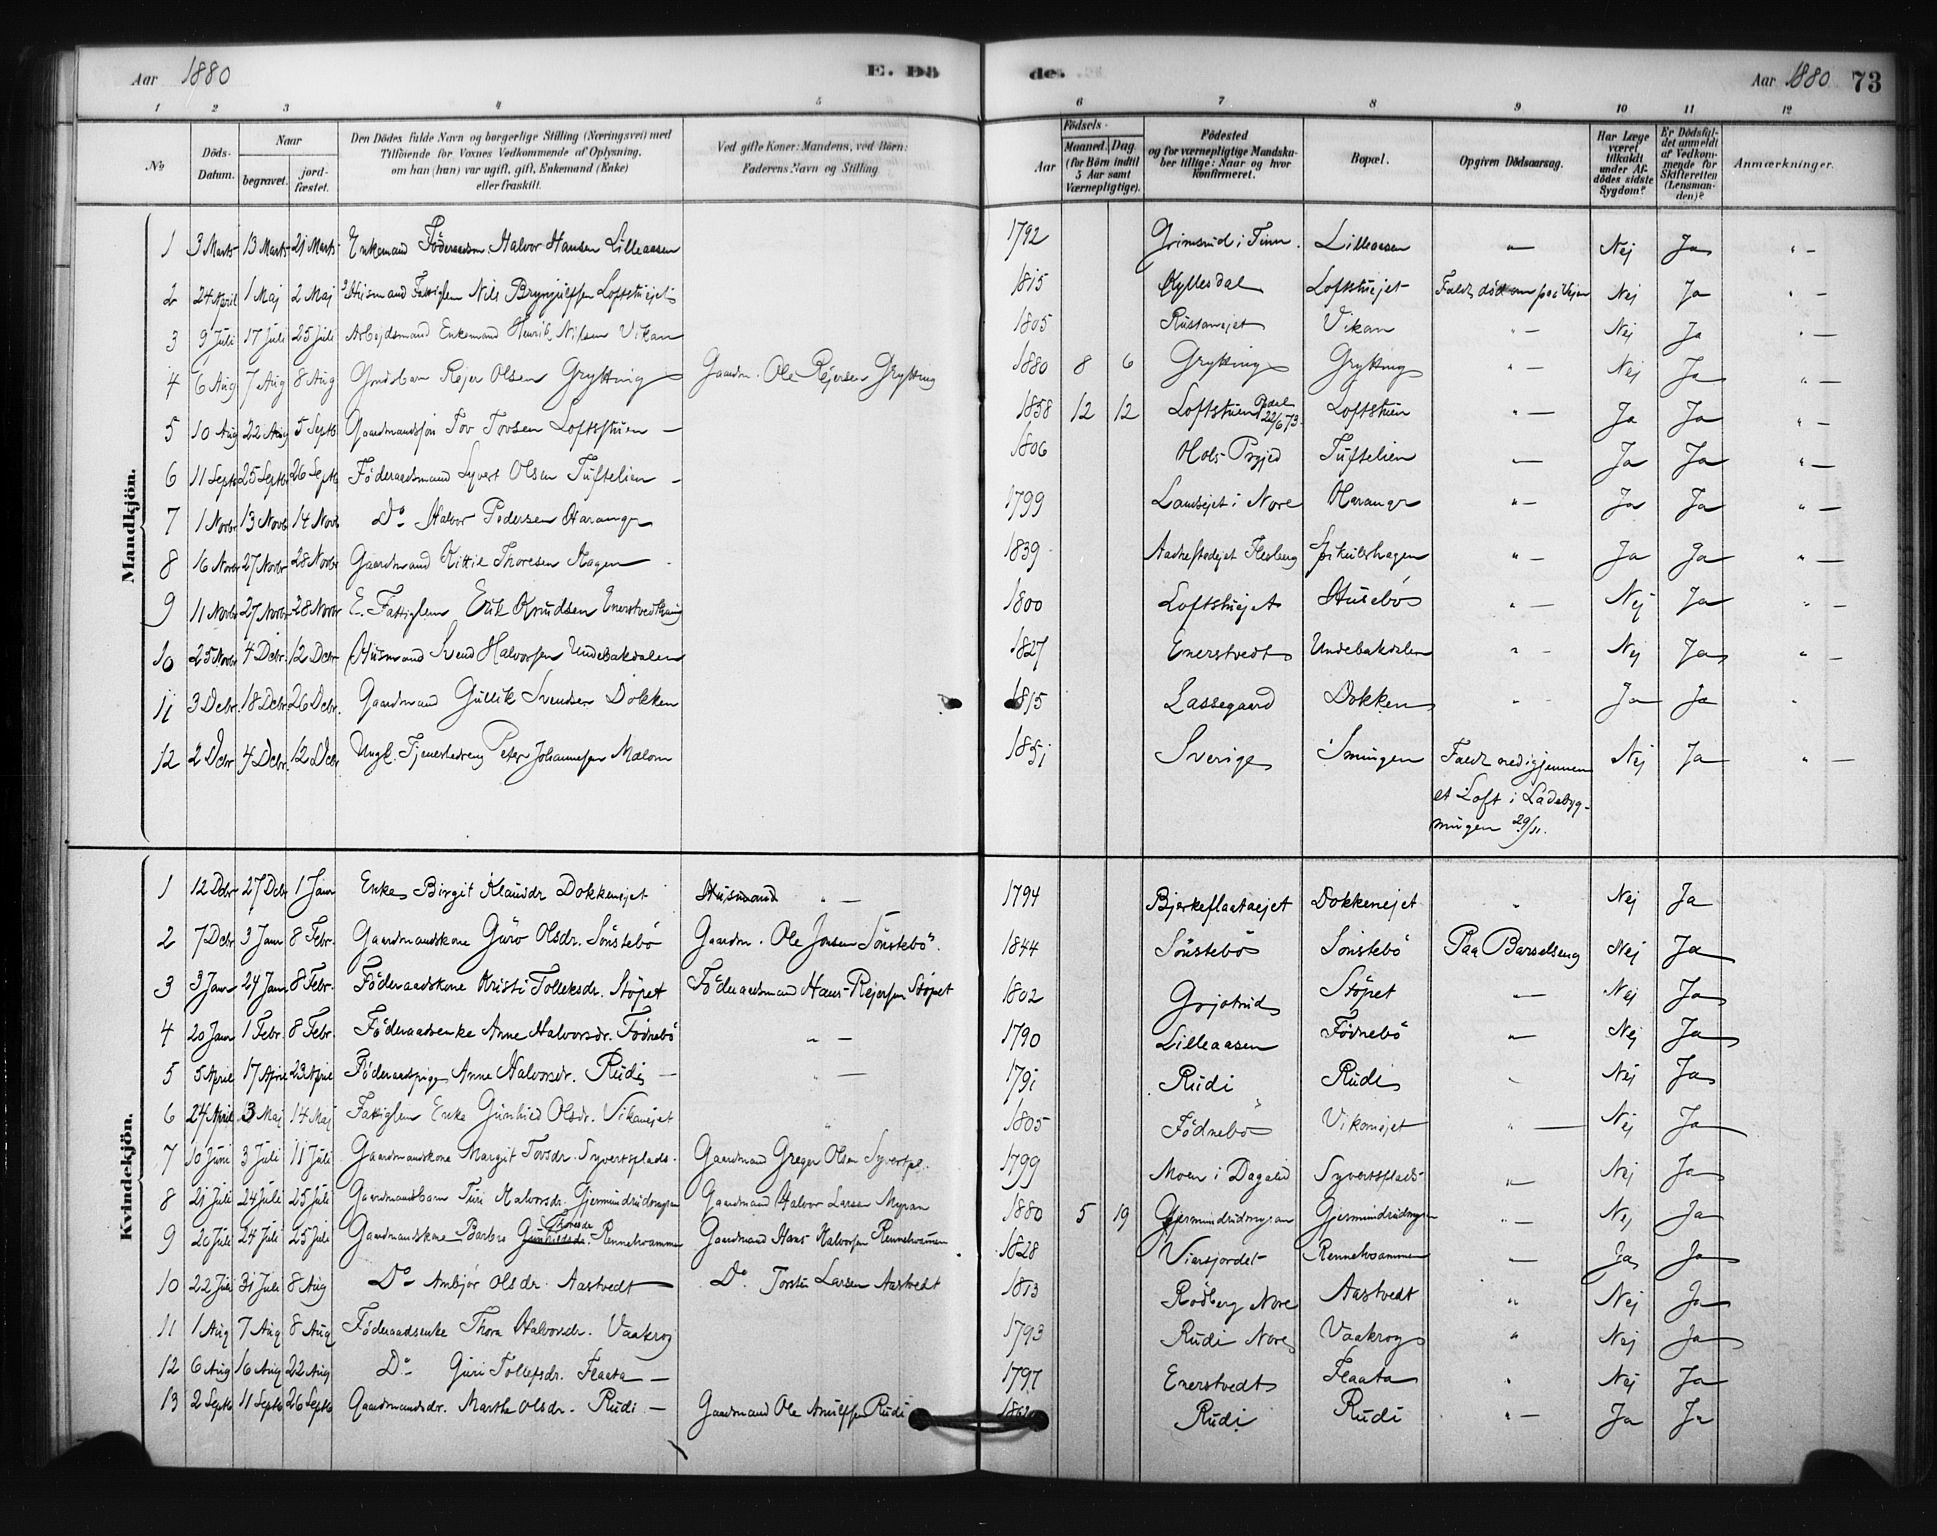 Aar 1880 E. Dö
de. Aar 1880 73
1 2 3 4 5 6 7 8 9 10 11 12
No Döds-Datum. Naar begravet. jord-fæstet. Den Dödes fulde Navn og borgerlige Stilling (Næringsvei) med Tilföiende for Voxnes Vedkommende af Oplysning, om han (hun) var ugift, gift, Enkemand (Enke) eller fraskilt. Ved gifte Koner: Mandens, ved Börn: Faderens Navn og Stilling Födsels- Aar Maaned. Dag. (for Börn indtil 5 Aar samt Værnepligtige). Födested og for værnepligtige Mandskaber tillige: Naar og hvor Konfirmeret. Bopæl. Opgiven Dödsaarsag. Har Læge været tilkaldt under Afdödes sidste Sygdom? Er Dödsfaldet anmeldt af Vedkommende for Skifteretten (Lensmanden)? Anmærkninger.
Mandkjön.
1 3 Marts 13 Marts 21 Marts Enkemand Föderaadsm. Halvor Hansen Lilleaasen 1792 Grimsrud i Tinn. Lilleaasen " — Nej Ja " —
2 24 April 1 Maj 2 Maj Husmand Fattiglem Nils Brynjulfsen Loftstuejet 1815 Kyllesdal Loftstuejet Faldt död om paa Vejen Nej Ja " —
3 9 Juli 17 Juli 25 Juli Arbejdsmand Enkemand Henrik Nilsen Vikan 1805 Rustanejet Vikan " — Nej Ja " —
4 6 Aug 7 Aug 8 Aug Gaardsbarn Rejer Olsen Grytting Gaardm. Ole Rejersen Grytting 1880 8 6 Grytting Grytting " — Nej Ja " —
5 10 Aug 22 Aug 5 Septb Gaardmandssön Tov Tovsen Loftsthuen — 1858 12 12 Loftstuen 22/6 73. Loftstuen " — Ja Ja " —
6 11 Septb 25 Septb 26 Septb Föderaadsmand Syvert Olsen Tuftelien — 1806 Hols Prgjed Tuftelien — Ja Ja " —
7 1 Novbr 13 Novb 14 Novb Do Halvor Pedersen Harange 1799 Landsejet i Nore Harange " — Ja Ja " —
8 16 Novbr 27 Novbr 28 Novbr Gaardmand Kittil Thoresen Hagen 1839 Flesberg " — Ja Ja " —
9 11 Novbr 27 Novbr 28 Novbr E. Fattiglem Erik Knudsen 1800 Loftstuejet Husebö " — Nej Ja " —
10 25 Novbr 4 Decbr. 12 Decbr Husmand Svend Halvorsen Undebakdalen 1827 Enerstvedt Undebakdalen " — Nej Ja " —
11 3 Decbr. 18 Decbr. 26 Decbr. Gaardmand Gullik Svendsen Dokken 1815 Lassegaard Dokken " " Ja Ja "
12 2 Decbr 4 Decbr. 12 Decbr Ungk. Tjenestedreng Peter Johannesen Malom 1851 Sverige Smuigen Faldt ned igjennem Nej Ja " —
et Loft i Ladebyg-
ningen 29/11.
Kvindekjön.
1 12 Decbr 27 Decbr 1 Janr Enke Birgit Klausdr Dokkenejet Husmand " — 1794 Bjerkeflaataejet Dokkenejet " Nej Ja
2 7 Decbr 3 Janr 8 Febr. Gaardmandskone Guro Olsdr. Sönstebö Gaardm. Ole Jonsen Sönstebö. 1844 Sönstebö Sönstebö Paa Barselseng Nej Ja
3 3 Janr 24 Janr 8 Febr. Föderaadskone Kristi Tolleksdr. Stöpet Föderaadsmand Hans Rejersen Stöpet 1802 Grjotrud Stöpet — Nej Ja
4 20 Janr 1 Febr. 8 Febr. Föderaadsenke Anne Halvorsdr. Födnebö " — 1790 Lilleaasen Födnebö — Nej Ja
5 5 April 17 April 23 April Föderaadspige Anne Halvorsdr. Rudi — " — 1791 Rudi Rudi " Nej Ja
6 24 April 3 Maj 14 Maj Fattiglem Enke Gunhild Olsdr. Vikanejet " 1805 Födnebö Vikanejet " — Nej Ja
7 10 Juni 3 Juli 11 Juli Gaardmandskone Margit Tovsdr. Syvertsplads. Gaardmand Greger Olsen Syvertspl. 1799 Moen i Dagalid Syvertsplads — Nej Ja
8 21 Juli 24 Juli 25 Juli Gaardmandbarn Turi Halvorsdr. Gjermundrudmyran Gaardmand Halvor Larsen Myran 1880 5 19 Gjermundrudmyran Gjermundrudmyran " — Nej Ja
9 20 Juli 24 Juli 25 Juli Gaardmandskone Barbro Rennehvammen Gaardmand Hans Halvorsen Rennehvammen 1828 Viersjordet Rennehvammen — Ja Ja
10 22 Juli 31 Juli 8 Aug Do Ambjör Olsdr. Aastvedt Do Torsten Larsen Aastvedt 1813 Rödberg Nore Aastvedt " Nej Ja
11 1 Aug 7 Aug 8 Aug Föderaadsenke Thora Halvorsdr. Vaakroy 1793 Rudi Nore Vaakroy " Nej Ja
12 6 Aug 16 Aug 22 Aug Do Guri Tollefsdr. Flaata — 1797 Enerstvedt Flaata " Nej Ja
13 2 Septb 11 Septb 26 Septb Gaardmandsdr. Marthe Olsdr. Rudi — Gaardmand Ole Rudi Rudi Rudi " — Ja Ja